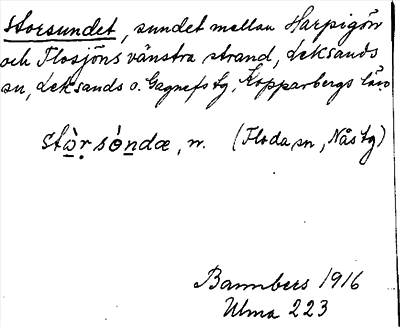 Storsundet, sundet mellan Harpigön
och Flosjöns vänstra strand, Leksands
sn, Leksands o. Gagnefs tg, Kopparbergs län.
stọ̀r̤sóndæ, n. (Floda sn, Nås tg)
Bannbers 1916
Ulma 223